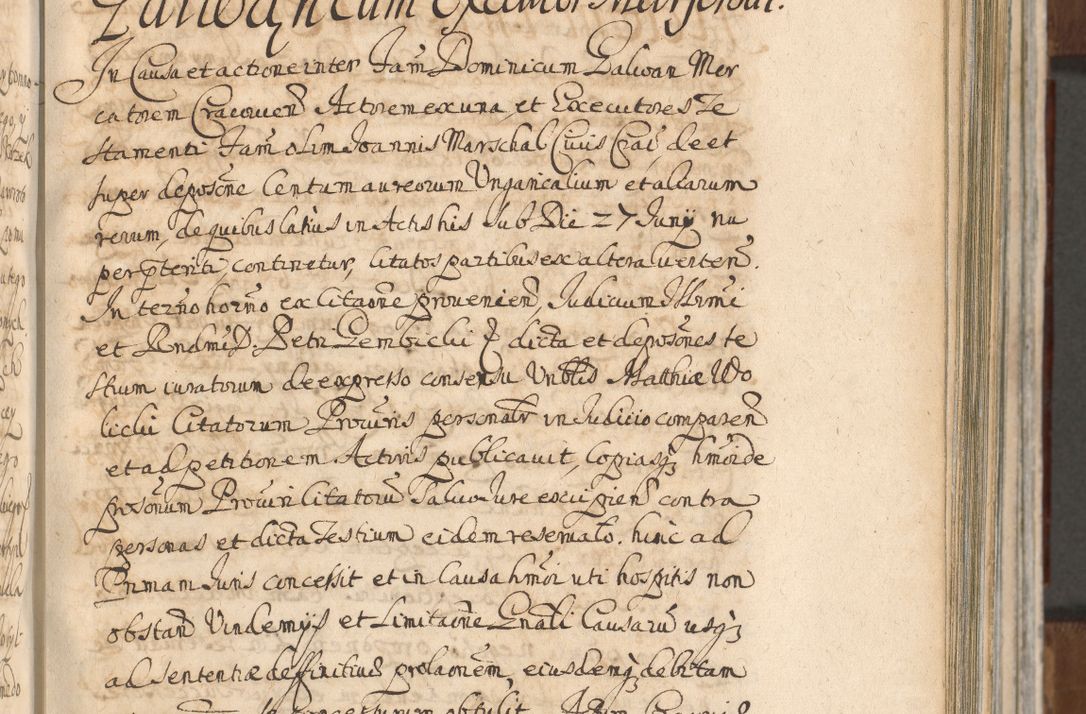 In Causa et actione inter Fam̃ Dominicum Galwan Mer
catorem Cracovien̄ Actorem ex una, et Executores Te
stamenti Fam̃ olim Joannis Marschal Civis Craĩ, de et
super deposõne Centum aureorum Ungaricalium et aliarum
rerum, de quibus latius in Actis his sub Die 27 Junij nu
per p̃teriti, continetur, Citatos partibus ex altera verten̄.
In termõ horño ex Citaõne provenien̄, Judicium Illrmi
et Rndmi D. Petri Gembicki Ep̃ dicta et deposõnes te
stium juratorum de expresso consensu Unb̃lis Matthiæ Wo
licki Citatorum Procuris personalr̃ in Judicio comparen̄
et ad petitionem Actoris publicavit, Copiasq3 hm̃oi de
posõnum Procuri Citatorũ Salvo Jure excipien̄ contra
personas et dicta Testium eidem reservato. hinc ad
Primam Juris concessit et in Causa hm̃oi uti hospitis non
obstan̄ Vindemijs et Limitaõne Gnali Causarũ usq3
ad sententiæ deffinitivæ prolaõnem, eiusdemq3 debitam